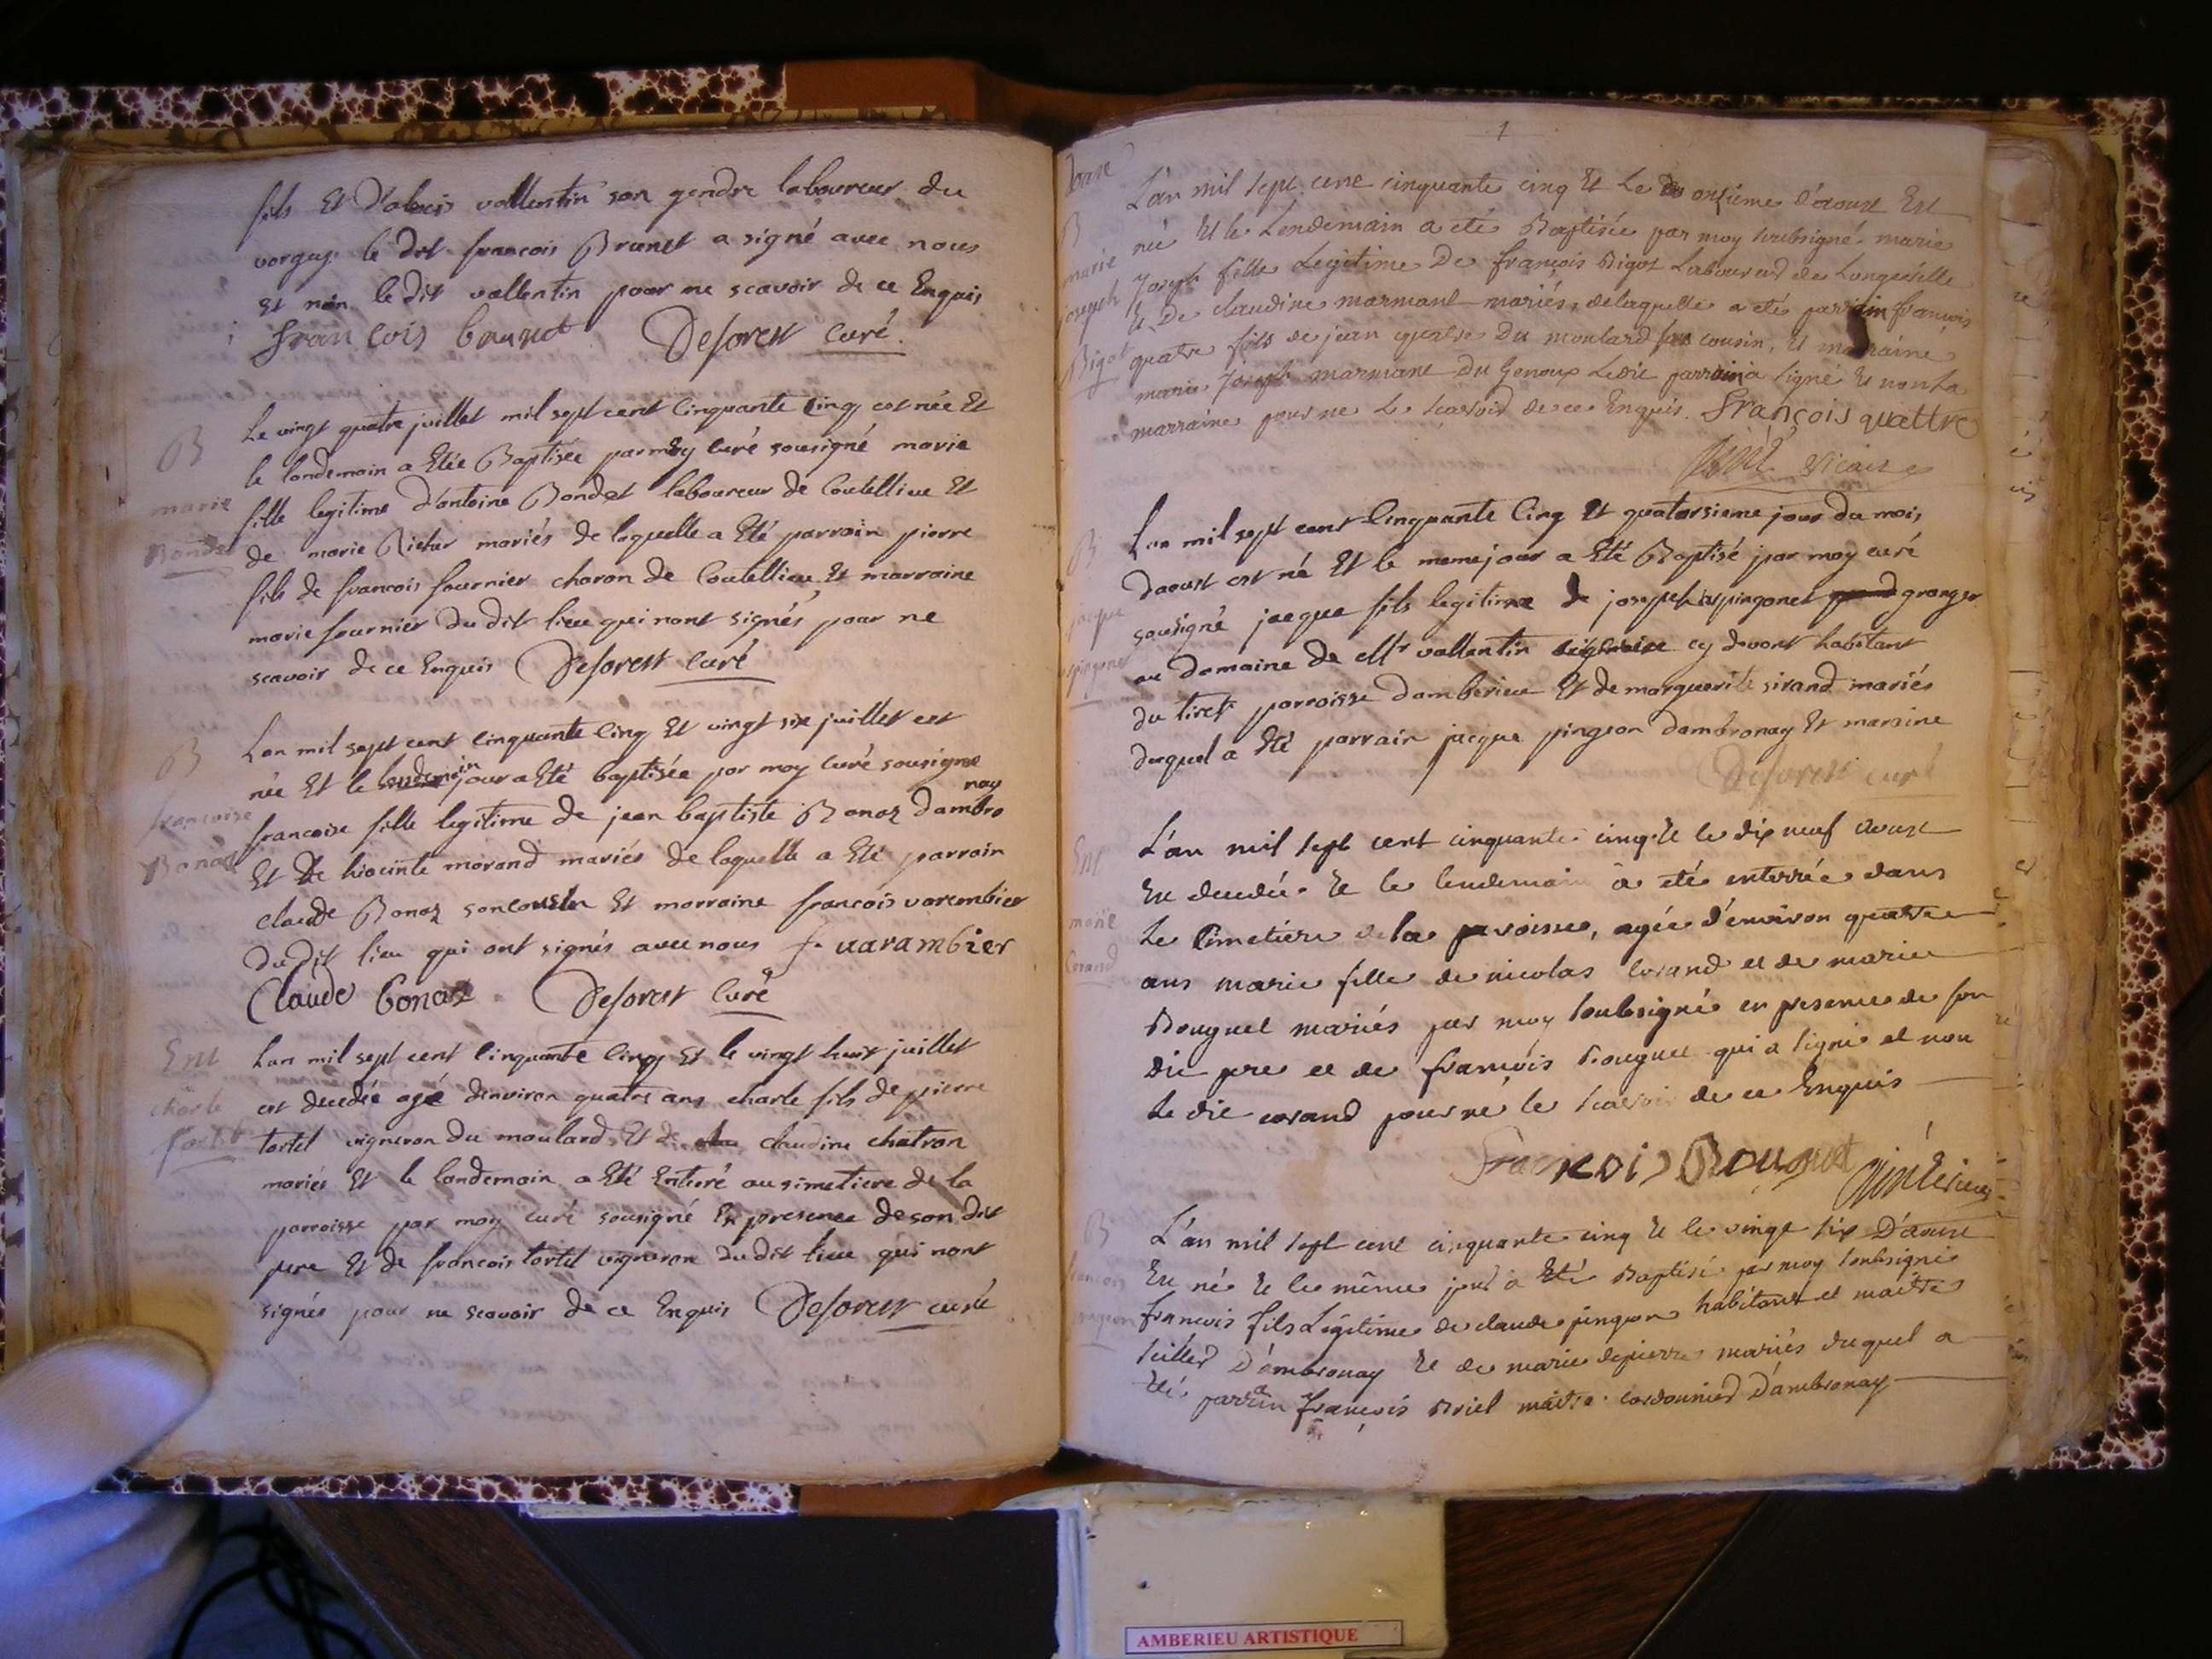 fils Et D'alexis vallentin son gendre laboureur du
vorgey. le dit francois Brunet a signé avec nous
Et non le dit vallentin pour ne scavoir de ce Enquis
francois brunet Deforest curé.
B
marie
Bondet
Le vingt quatre juillet mil sept cent cinquante cinq est née Et
le landemain a Etée Baptisée par moy curé sousigné marie
fille legitime d'antoine Bondet laboureur de Coutellieu Et
de marie Rietur mariés de laquelle a Eté parrain pierre
fils de francois fournier charon de Coutellieu, Et marraine
marie fournier du dit lieu qui nont signés, pour ne
scavoir de ce Enquis Deforest Curé
B
francoise
Bonaz
Lan mil sept cent cinquante cinq Et vingt six juillet est
née Et le landemain jour a Eté baptisée par moy curé sousigne
francoise fille legitime de jean baptiste Bonaz dambro
nay
Et De hiacinte morand mariés de laquelle a Eté parrain
claude Bonaz son cousin Et marraine francois varembier
du dit lieu qui ont signés avec nous f. uarambier
Claude bonaz Deforest Curé
Ent
charle
tortel
Lan mil sept cent cinquante cinq Et le vingt huit juillet
est decedée agé denviron quatre ans charle fils de pierre
tortel vigneron du moulard, Et de claudine chatron
mariés Et le landemain a Eté Enterré au simetiere de la
parroisse par moy curé sousigné En presence de son dit
pere Et de francois tortel vigneron du dit lieu qui nont
signés pour ne scavoir de ce Enquis Deforest curé
1
B
marie
joseph
Bigot
L'an mil sept cent cinquante cinq Et Le onzieme d'aoust Est
née Et le Lendemain a eté Baptisée par moy soubsigné marie
Joseph fille Legitime De françois Bigot Laboureur de Longeville
Et De claudine marmant mariés, de laquelle a eté parrain françois
quatre fils de jean quatre Du moulard son cousin, Et marraine
marie Joseph marmant Du Genoux Ledit parrain a signé Et non La
marraine pour ne Le scavoir de ce Enquis. François quattre
vicaire
B
jacque
Lan mil sept cent cinquante cinq Et quatorsieme jour du mois
daoust est né Et le meme jour a Eté Baptisé par moy curé
sousigné jacque fils legitime de joseph aspingonet granger
au domaine de Mr vallentin cy devant habitant
du tiret parroisse damberieu Et de marguerite sirand mariés
duquel a Eté parrain jacque pingeon dambronay Et maraine
Deforest curé
Ent
marie
Corand
L'an mil sept cent cinquante cinq Et le dix neuf Aoust
Est decedée Et le lendemain a eté enterrée dans
Le Cimetiere de la paroisse, agée d'environ quatre
ans marie fille de nicolas Corand et de marie
Bouguet mariés par moy soubsigné en presence de son
dit pere et de françois Bouguet qui a signé et non
Le dit corand pour ne le scavoir de ce Enquis
Francois Bouguet
B
francois
L'an mil sept cent cinquante cinq Et le vingt six D'aoust
Est né Et le même jour a Eté Baptisé par moy soubsigné
françois fils Légitime de claude pingeon habitant et maître
D'ambronay Et de marie depierre mariés duquel a
été parrain françois Briel maitre cordonnier D'ambronay
AMBERIEU ARTISTIQUE